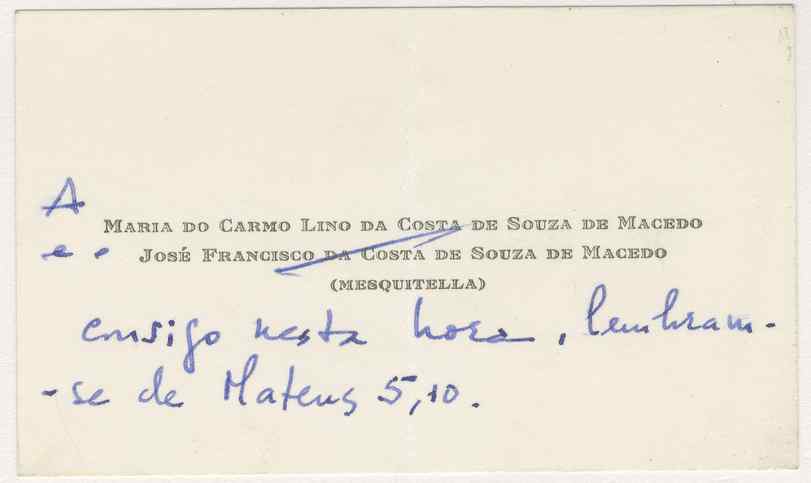 A
MARIA DO CARMO LINO DA COSTA DE SOUZA DE MACEDO
e o JOSÉ FRANCISCO DA COSTA DE SOUZA DE MACEDO
(MESQUITELLA)
consigo nesta hora, lembram-
-se de Mateus 5,10.